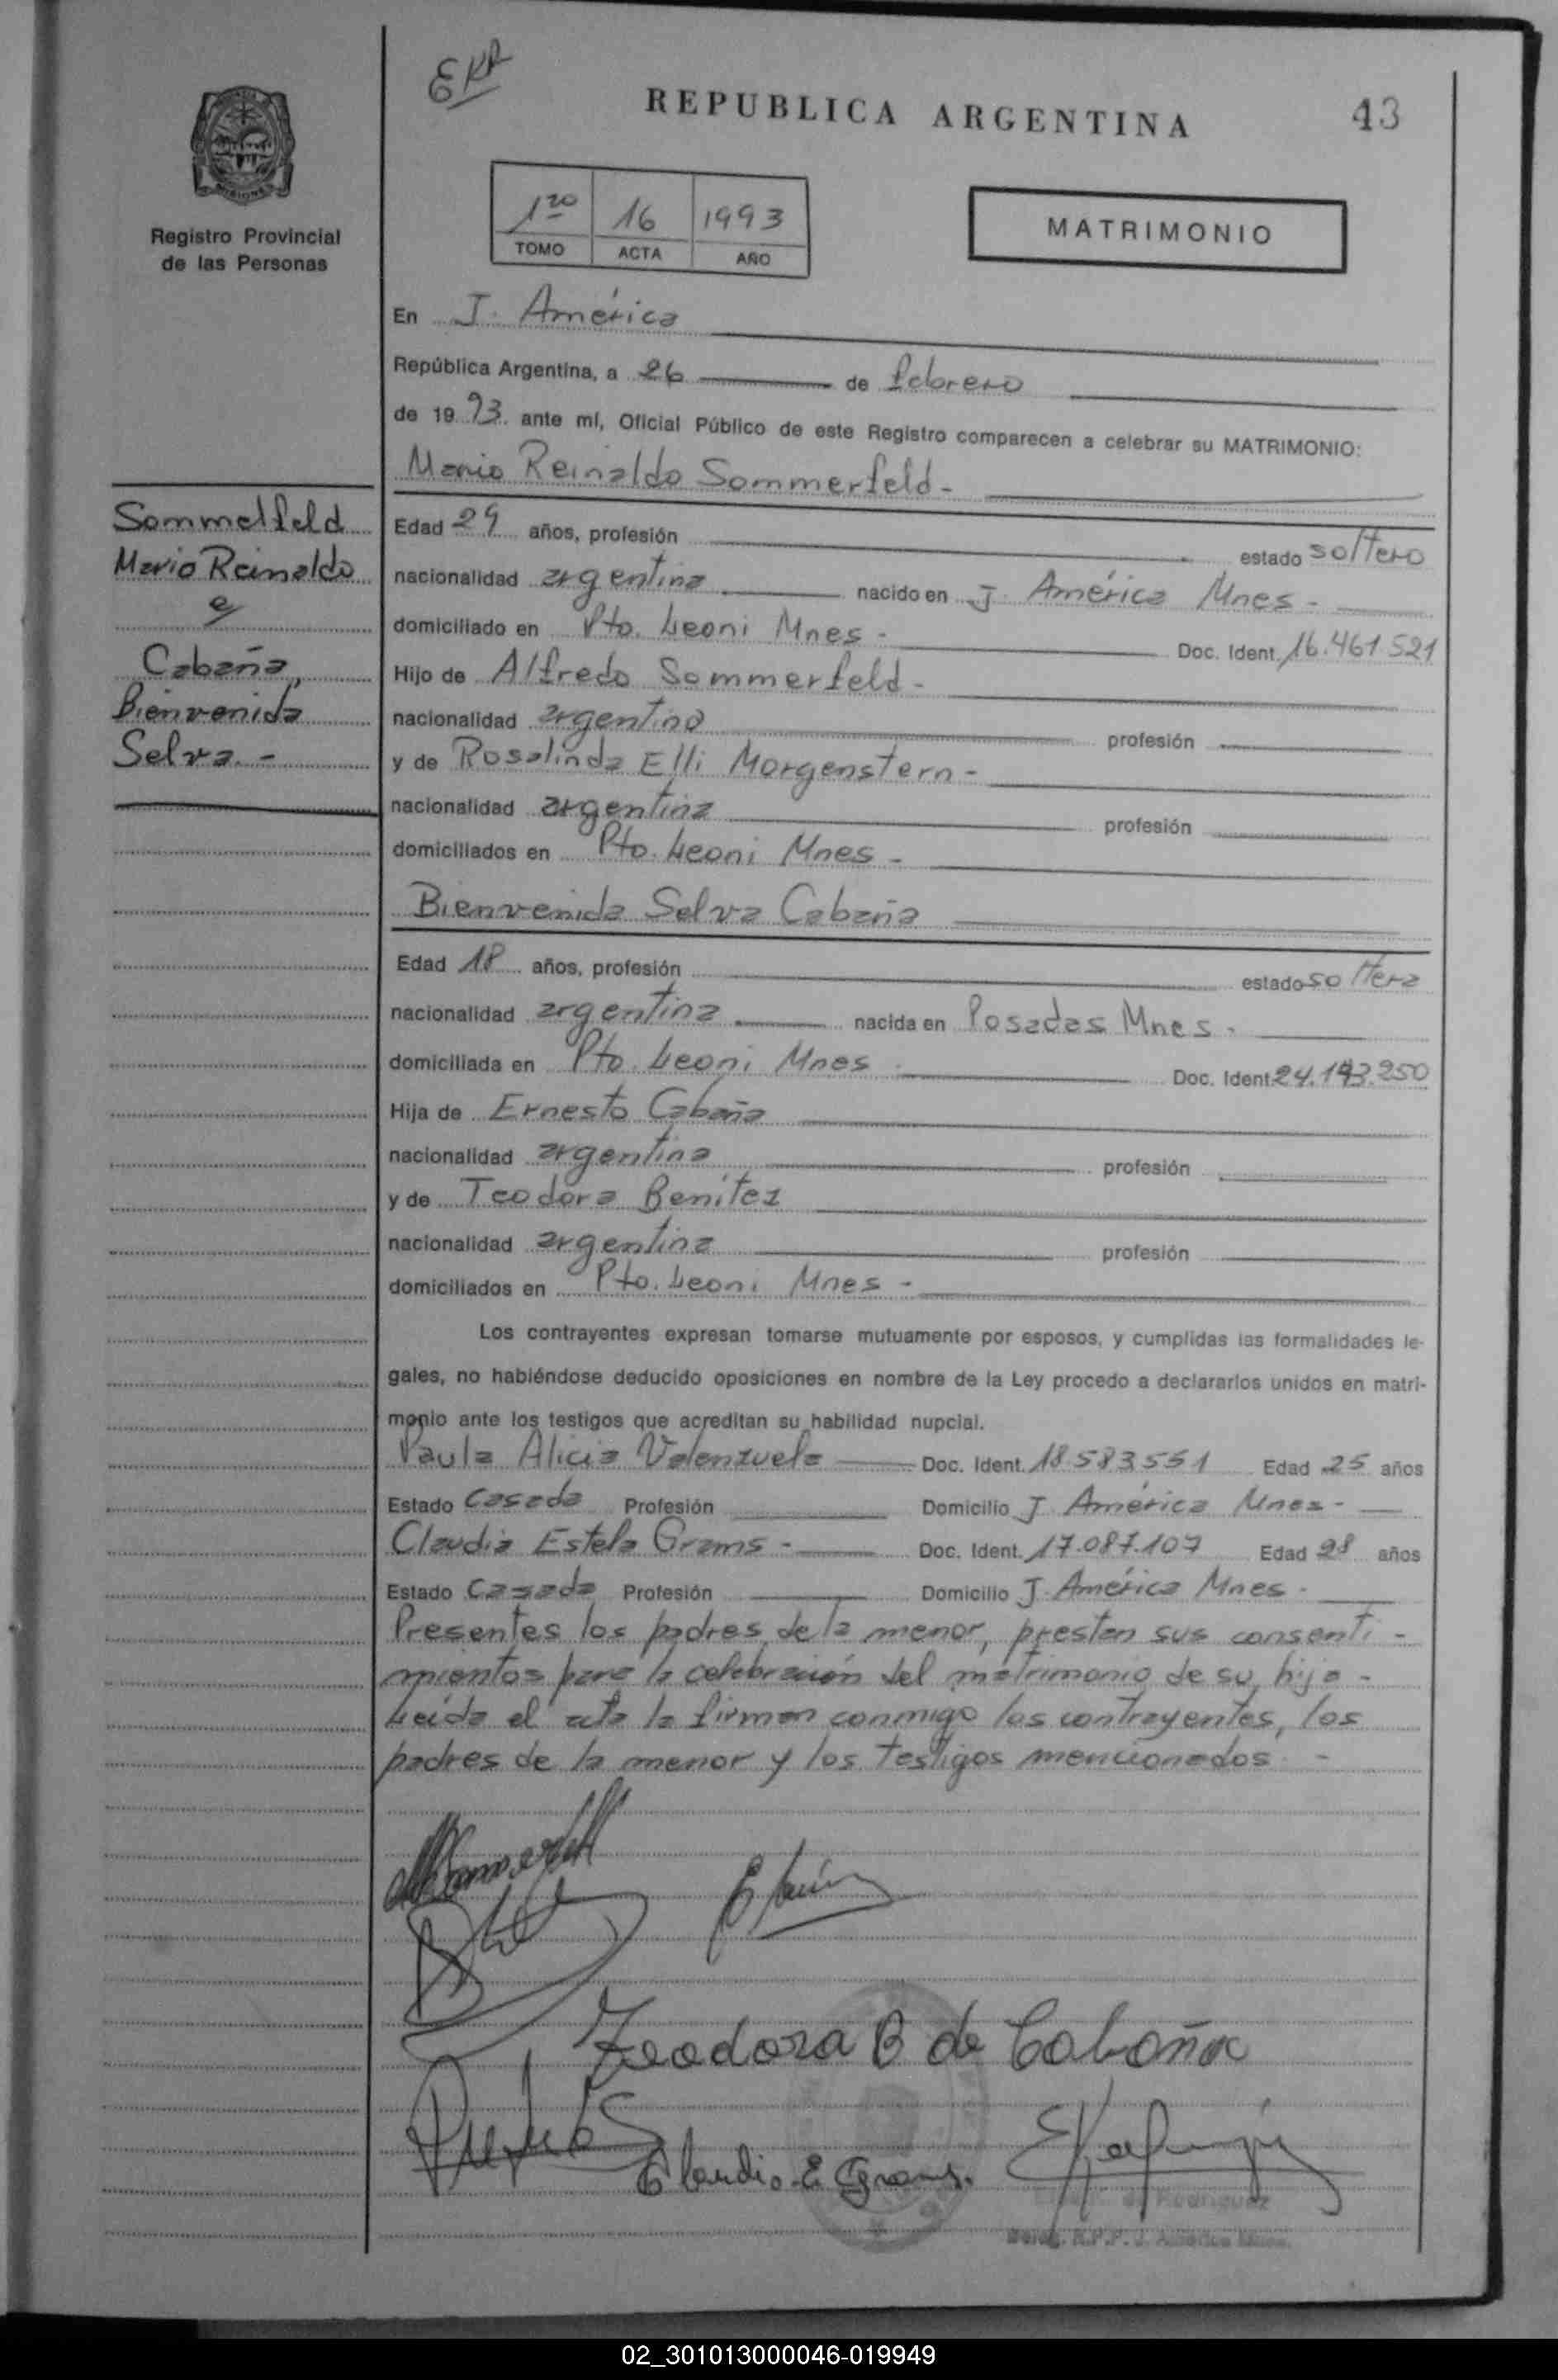 EKR
REPUBLICA ARGENTINA
43
Registro Provincial
de las Personas
1ro 16 1993
TOMO ACTA AÑO
MATRIMONIO
En J. América
República Argentina, a 26 de febrero
de 1993. ante mí, Oficial Público de este Registro comparecen a celebrar su MATRIMONIO:
Mario Reinaldo Sommerfeld -
Sommelfeld
Mario Reinaldo
e/
Cabaña,
Bienvenida
Selva. -
Edad 29 años, profesión estado soltero
nacionalidad argentina nacido en J. América Mnes -
domiciliado en Pto. Leoni Mnes - Doc. Ident. 16.461.521
Hijo de Alfredo Sommerfeld -
nacionalidad argentino profesión
y de Rosalinda Elli Morgenstern -
nacionalidad argentina profesión
domiciliados en Pto. Leoni Mnes -
Bienvenida Selva Cabaña
Edad 18 años, profesión estado soltera
nacionalidad argentina nacida en Posadas Mnes -
domiciliada en Pto. Leoni Mnes Doc. Ident. 24.143.250
Hija de Ernesto Cabaña
nacionalidad argentina profesión
y de Teodora Benítez
nacionalidad argentina profesión
domiciliados en Pto. Leoni Mnes -
Los contrayentes expresan tomarse mutuamente por esposos, y cumplidas las formalidades le-
gales, no habiéndose deducido oposiciones en nombre de la Ley procedo a declararlos unidos en matri-
monio ante los testigos que acreditan su habilidad nupcial.
Paula Alicia Valenzuela Doc. Ident. 18.583.551 Edad 25 años
Estado Casada Profesión Domicilio J. América Mnes -
Claudia Estela Grams - Doc. Ident. 17.087.107 Edad 28 años
Estado Casada Profesión Domicilio J. América Mnes -
Presentes los padres de la menor, prestan sus consenti -
mientos para la celebración del matrimonio de su hija -
Leída el acta la firman conmigo los contrayentes, los
padres de la menor y los testigos mencionados. -
Teodora B de Cabaña
Claudia E Grams.
de Rodriguez
R.P.P. J. América Mnes.
02_301013000046-019949